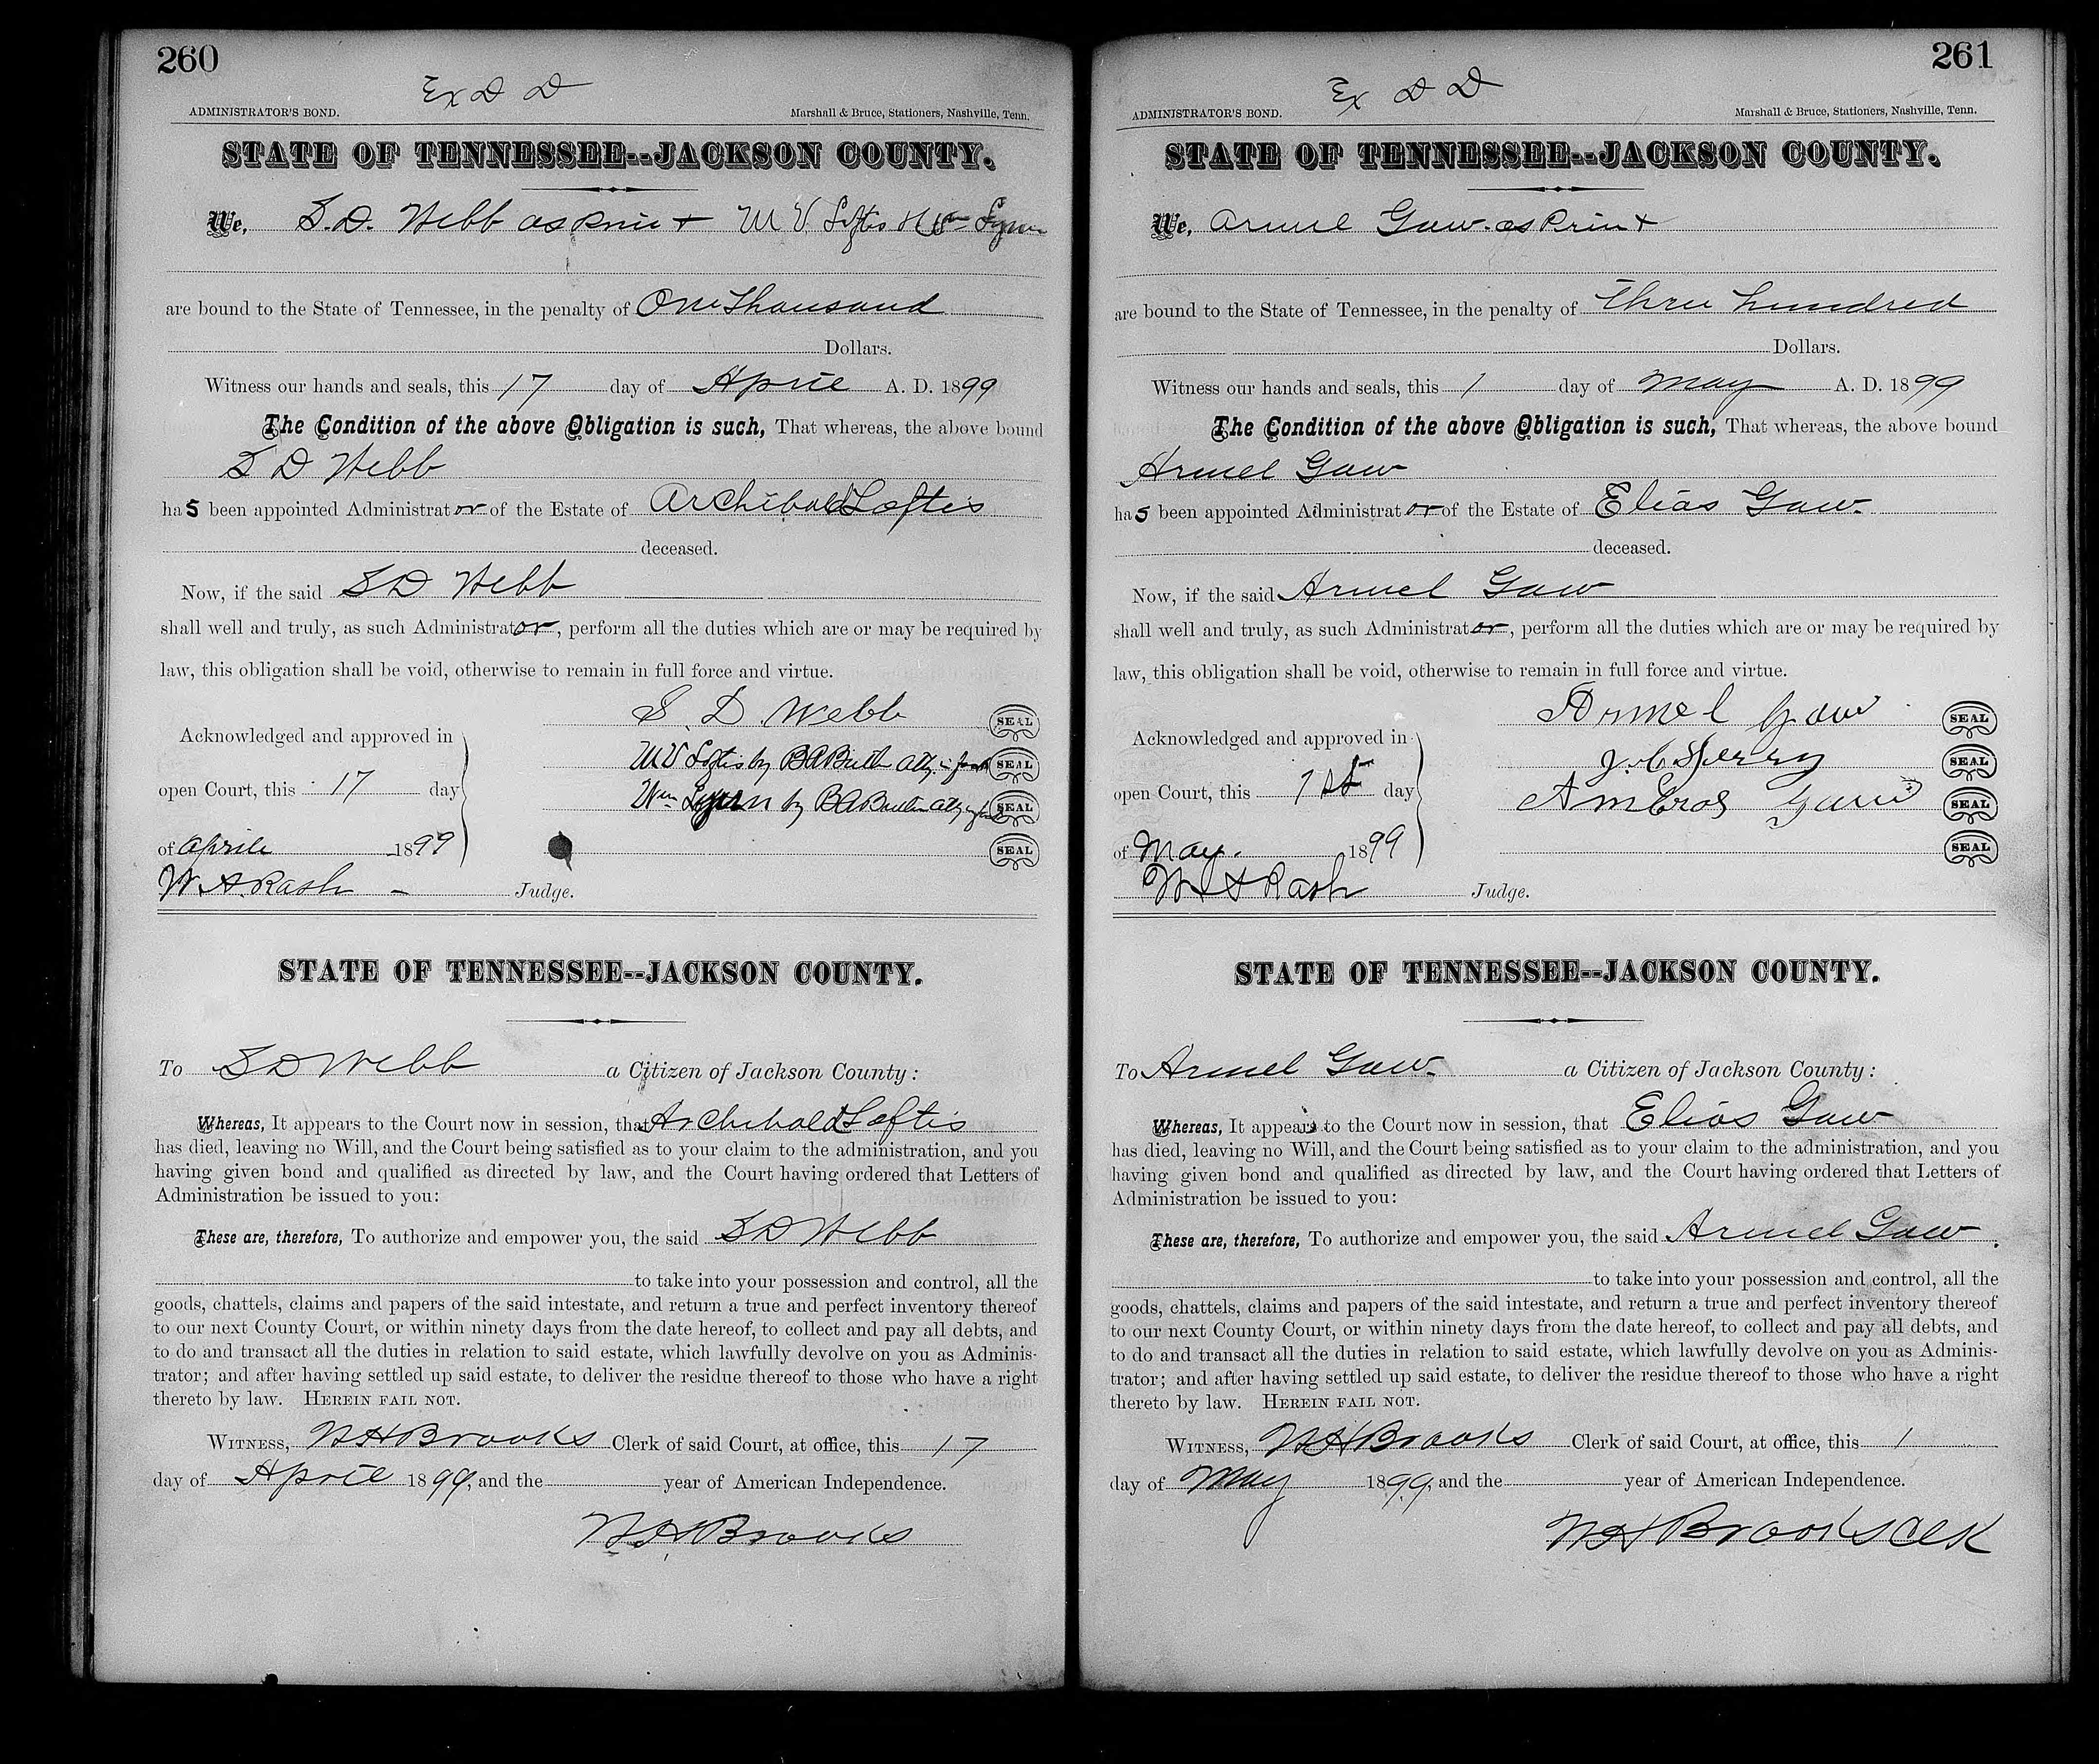 260
Ex D D
ADMINISTRATOR'S BOND. Marshall & Bruce, Stationers, Nashville, Tenn.
STATE OF TENNESSEE--JACKSON COUNTY.
We, S. D. Webb as Prin + M V Loftis & Wm Lynn
are bound to the State of Tennessee, in the penalty of One Thousand
Dollars.
Witness our hands and seals, this 17 day of April A. D. 1899
The Condition of the above Obligation is such, That whereas, the above bound
S D Webb
has been appointed Administrator of the Estate of Archibald Loftis
deceased.
Now, if the said S D Webb
shall well and truly, as such Administrator, perform all the duties which are or may be required by
law, this obligation shall be void, otherwise to remain in full force and virtue.
S. D Webb SEAL
Acknowledged and approved in
M V Loftis by B A Butler atty in fact SEAL
open Court, this 17 day
Wm Lynn by B A Butler atty in fact SEAL
of Aprile 1899 SEAL
W. A. Rash Judge.
STATE OF TENNESSEE--JACKSON COUNTY.
To S D Webb a Citizen of Jackson County:
Whereas, It appears to the Court now in session, that Archibald Loftis
has died, leaving no Will, and the Court being satisfied as to your claim to the administration, and you
having given bond and qualified as directed by law, and the Court having ordered that Letters of
Administration be issued to you:
These are, therefore, To authorize and empower you, the said S D Webb
to take into your possession and control, all the
goods, chattels, claims and papers of the said intestate, and return a true and perfect inventory thereof
to our next County Court, or within ninety days from the date hereof, to collect and pay all debts, and
to do and transact all the duties in relation to said estate, which lawfully devolve on you as Adminis-
trator; and after having settled up said estate, to deliver the residue thereof to those who have a right
thereto by law. HEREIN FAIL NOT.
WITNESS, N H Brooks Clerk of said Court, at office, this 17
day of April 1899, and the year of American Independence.
N H Brooks
261
Ex D D
ADMINISTRATOR'S BOND. Marshall & Bruce, Stationers, Nashville, Tenn.
STATE OF TENNESSEE--JACKSON COUNTY.
We, Armel Gaw. as Prin +
are bound to the State of Tennessee, in the penalty of Three hundred
Dollars.
Witness our hands and seals, this 1 day of May A. D. 1899
The Condition of the above Obligation is such, That whereas, the above bound
Armel Gaw
has been appointed Administrator of the Estate of Elias Gaw.
deceased.
Now, if the said Armel Gaw
shall well and truly, as such Administrator, perform all the duties which are or may be required by
law, this obligation shall be void, otherwise to remain in full force and virtue.
Armel Gaw SEAL
Acknowledged and approved in
J. C Sperry SEAL
open Court, this 1st day
Ambros Gaw SEAL
of May. 1899 SEAL
W A Rash Judge.
STATE OF TENNESSEE--JACKSON COUNTY.
To Armel Gaw. a Citizen of Jackson County:
Whereas, It appears to the Court now in session, that Elias Gaw
has died, leaving no Will, and the Court being satisfied as to your claim to the administration, and you
having given bond and qualified as directed by law, and the Court having ordered that Letters of
Administration be issued to you:
These are, therefore, To authorize and empower you, the said Armel Gaw.
to take into your possession and control, all the
goods, chattels, claims and papers of the said intestate, and return a true and perfect inventory thereof
to our next County Court, or within ninety days from the date hereof, to collect and pay all debts, and
to do and transact all the duties in relation to said estate, which lawfully devolve on you as Adminis-
trator; and after having settled up said estate, to deliver the residue thereof to those who have a right
thereto by law. HEREIN FAIL NOT.
WITNESS, N H Brooks Clerk of said Court, at office, this 1
day of May 1899, and the year of American Independence.
N H Brooks Clk